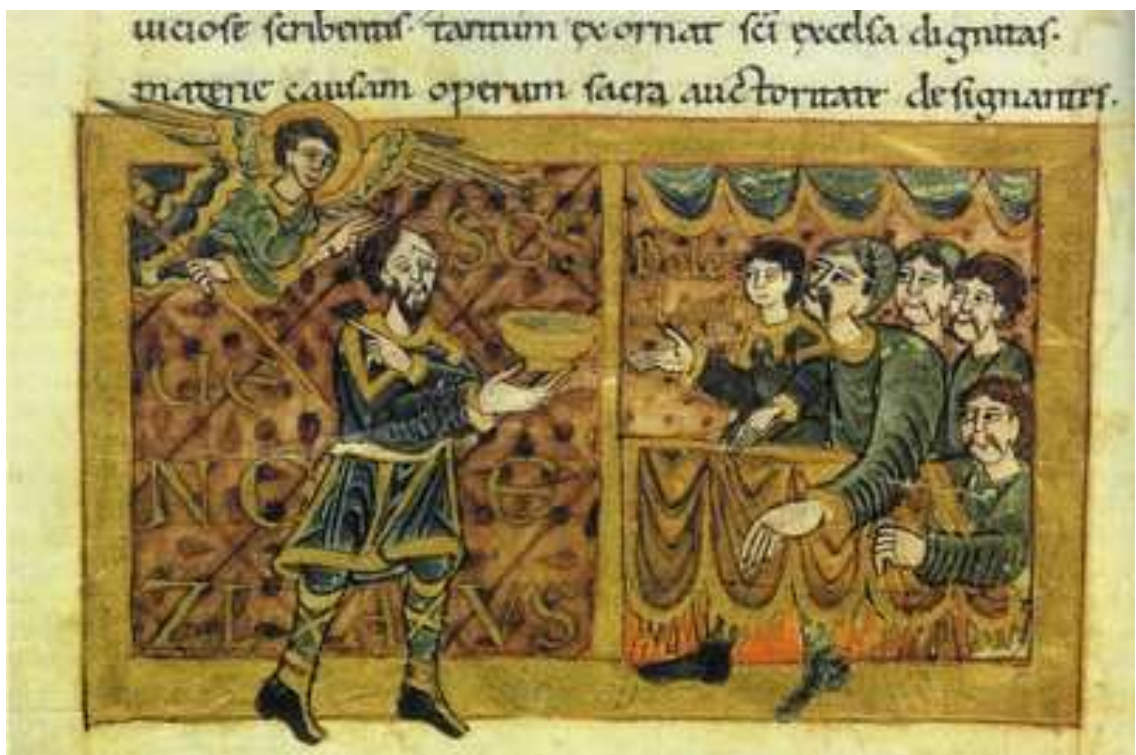 uiciose scribentis. tantum exornat sci excelsa dignitas.
materie causam operum sacra auctoritate designantes.
SCS
UE
NCE
ZLAVS